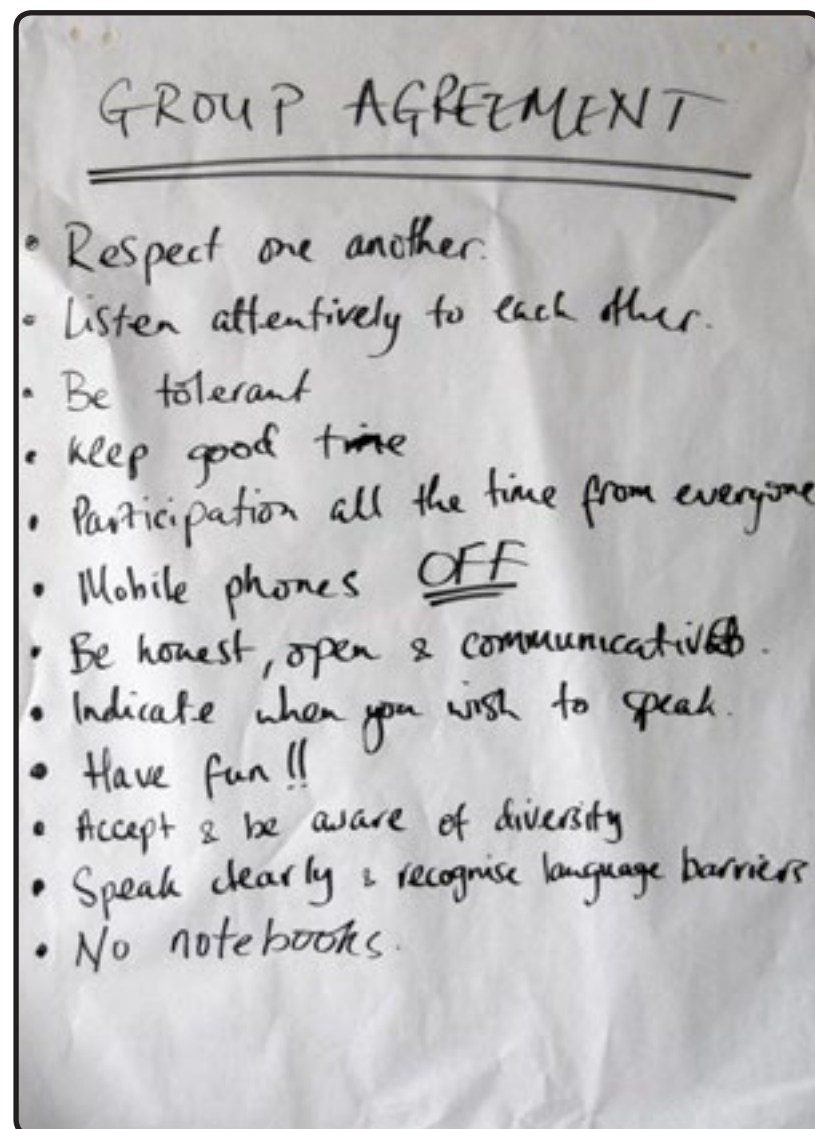 GROUP AGREEMENT
• Respect one another.
• Listen attentively to each other.
• Be tolerant
• Keep good time
• Participation all the time from everyone
• Mobile phones OFF
• Be honest, open & communicative.
• Indicate when you wish to speak.
• Have fun!!
• Accept & be aware of diversity
• Speak clearly & recognise language barriers
• No notebooks.